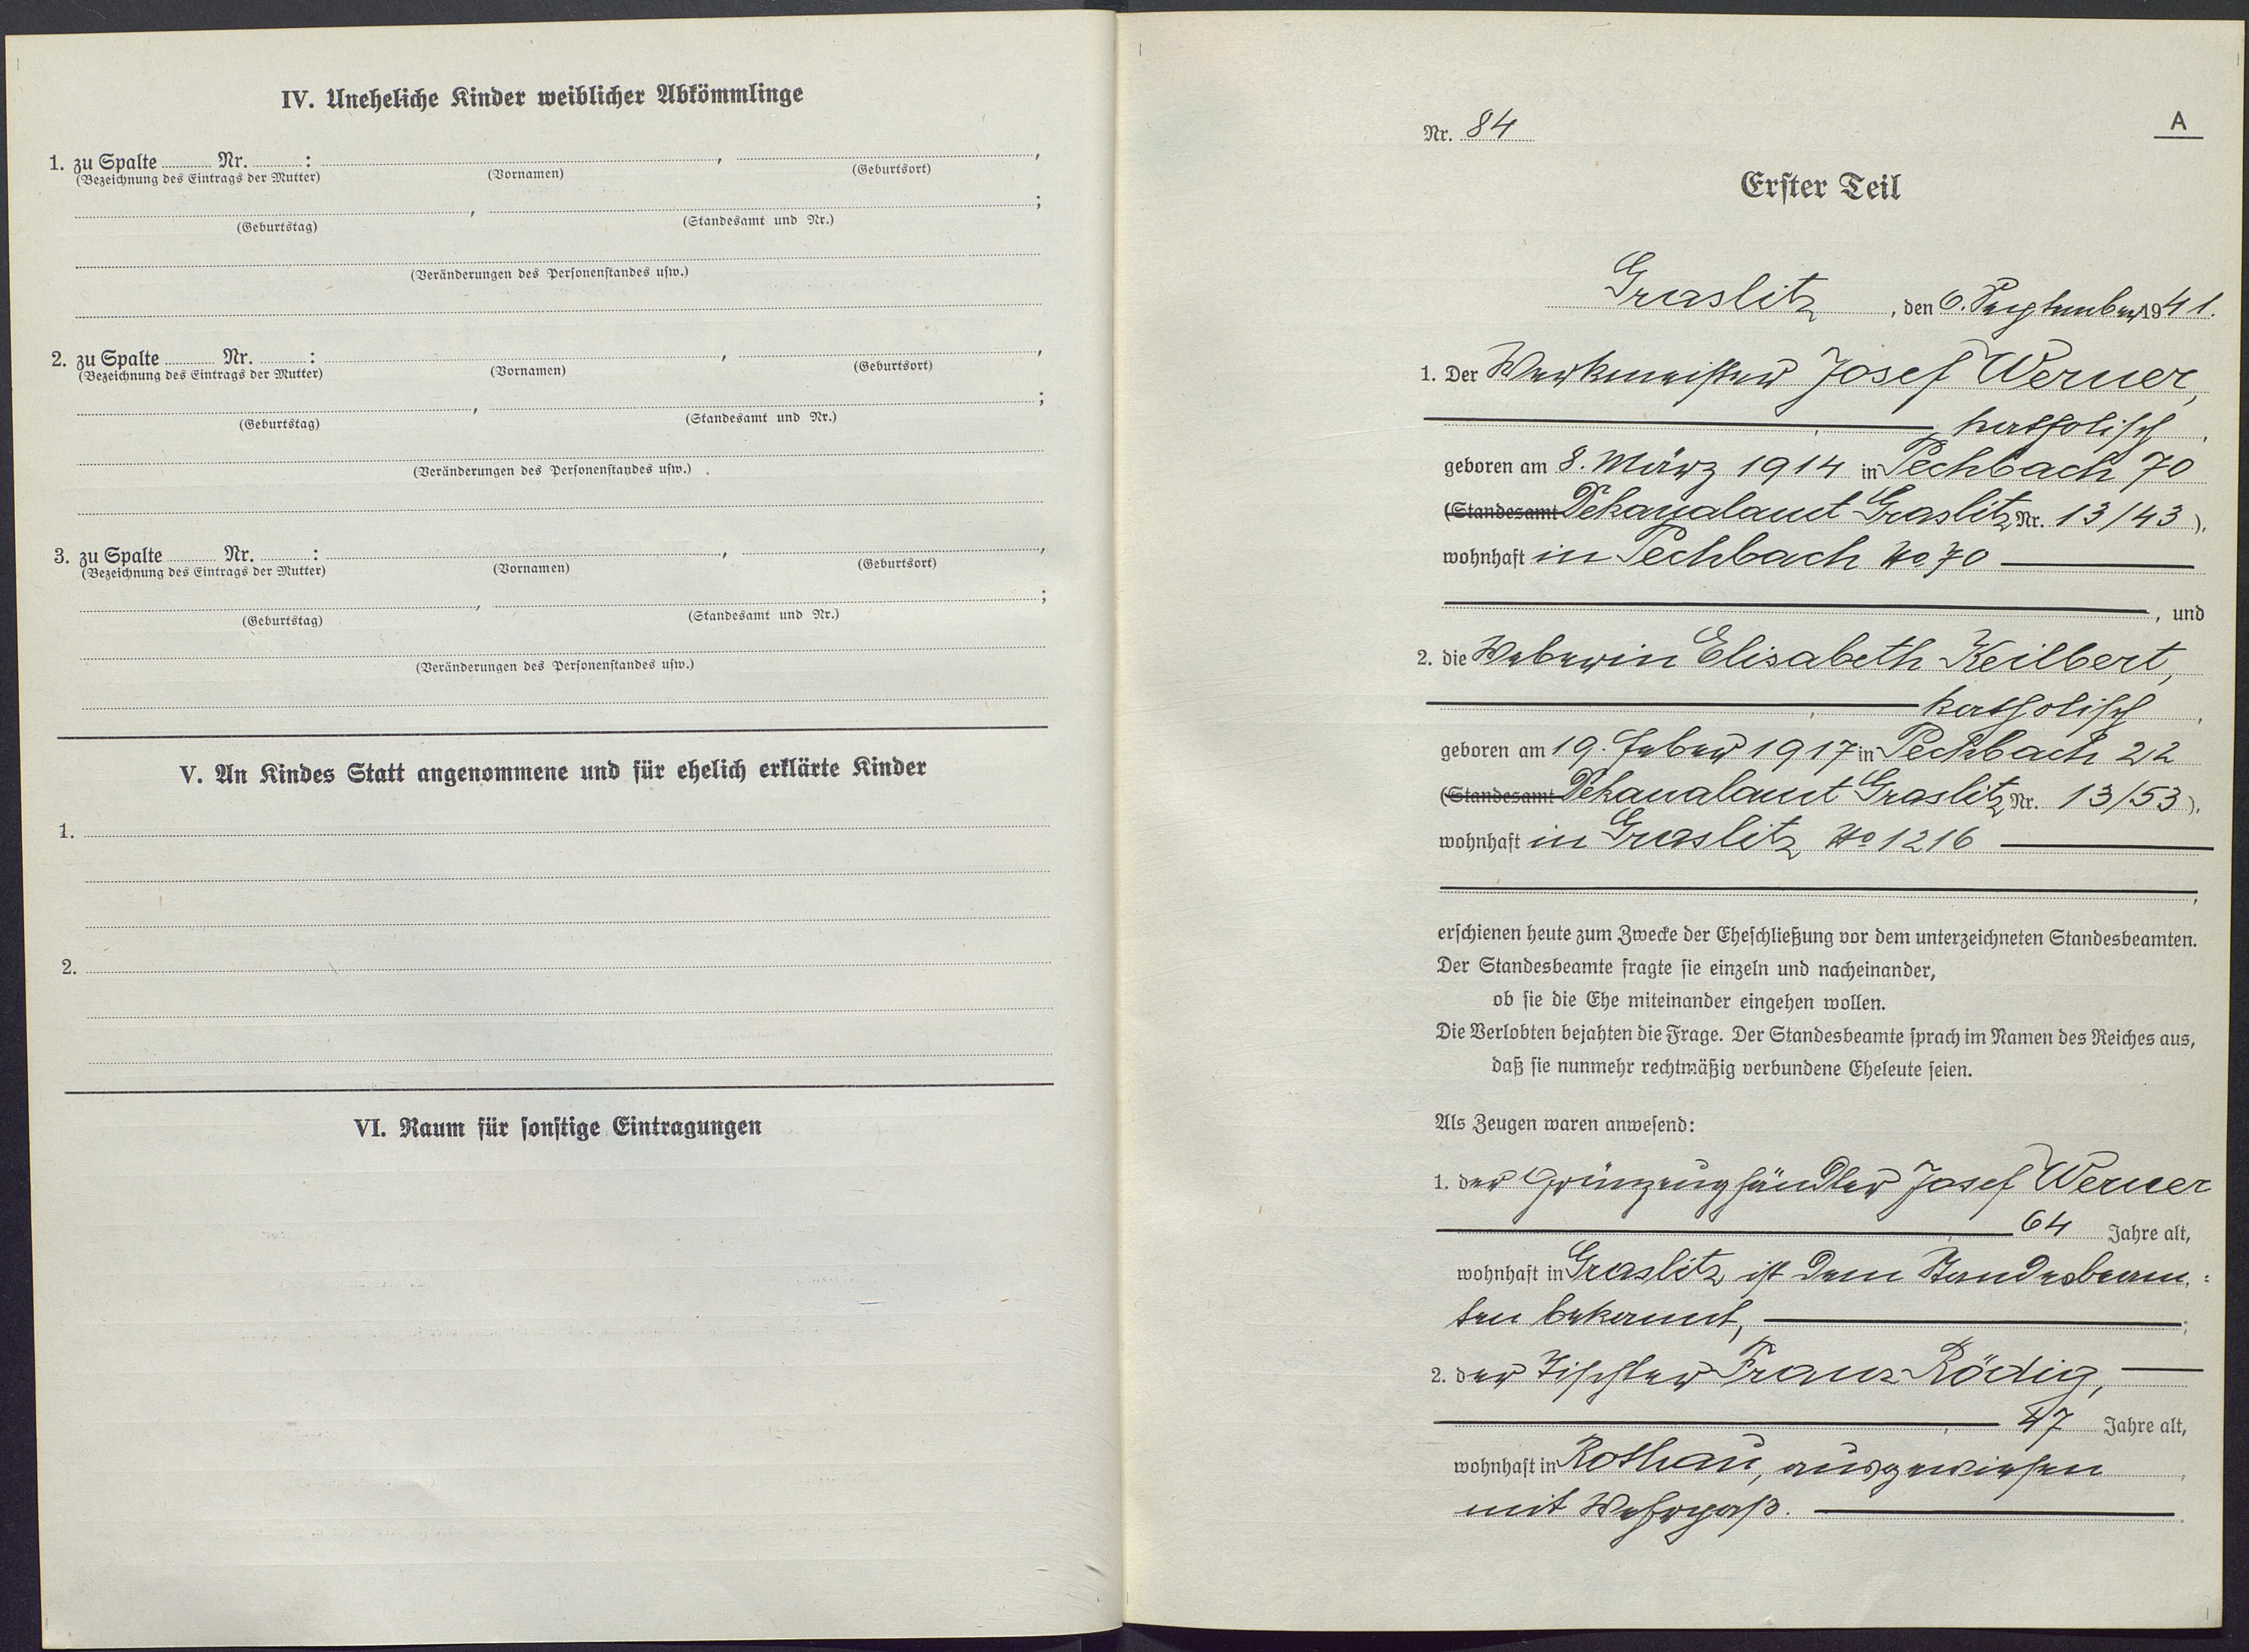 IV. Uneheliche Kinder weiblicher Abkömmlinge
1. zu Spalte ........ Nr. ........ : ........, ........,
(Bezeichnung des Eintrags der Mutter) (Vornamen) (Geburtsort)
........, ........;
(Geburtstag) (Standesamt und Nr.)
(Veränderungen des Personenstandes usw.)
2. zu Spalte ........ Nr. ........ : ........, ........,
(Bezeichnung des Eintrags der Mutter) (Vornamen) (Geburtsort)
........, ........;
(Geburtstag) (Standesamt und Nr.)
(Veränderungen des Personenstandes usw.)
3. zu Spalte ........ Nr. ........ : ........, ........,
(Bezeichnung des Eintrags der Mutter) (Vornamen) (Geburtsort)
........, ........;
(Geburtstag) (Standesamt und Nr.)
(Veränderungen des Personenstandes usw.)
V. An Kindes Statt angenommene und für ehelich erklärte Kinder
1.
2.
VI. Raum für sonstige Eintragungen
Nr. 84
A
Erster Teil
Graslitz, den 6. September 1941.
1. Der Werkmeister Josef Werner,
katholisch,
geboren am 8. März 1914 in Pechbach 70
(Standesamt Dekanalamt Graslitz Nr. 13/43),
wohnhaft in Pechbach No 70
, und
2. die Weberin Elisabeth Keilbert,
katholisch,
geboren am 19. Feber 1917 in Pechbach 22
(Standesamt Dekanalamt Graslitz Nr. 13/53),
wohnhaft in Graslitz No 1216
,
erschienen heute zum Zwecke der Eheschließung vor dem unterzeichneten Standesbeamten.
Der Standesbeamte fragte sie einzeln und nacheinander,
ob sie die Ehe miteinander eingehen wollen.
Die Verlobten bejahten die Frage. Der Standesbeamte sprach im Namen des Reiches aus,
daß sie nunmehr rechtmäßig verbundene Eheleute seien.
Als Zeugen waren anwesend:
1. der Grünzeughändler Josef Werner
64 Jahre alt,
wohnhaft in Graslitz ist dem Standesbeam=
ten bekannt,;
2. der Tischler Franz Rödig,
47 Jahre alt,
wohnhaft in Rothau, ausgewiesen
mit Wehrpaß.